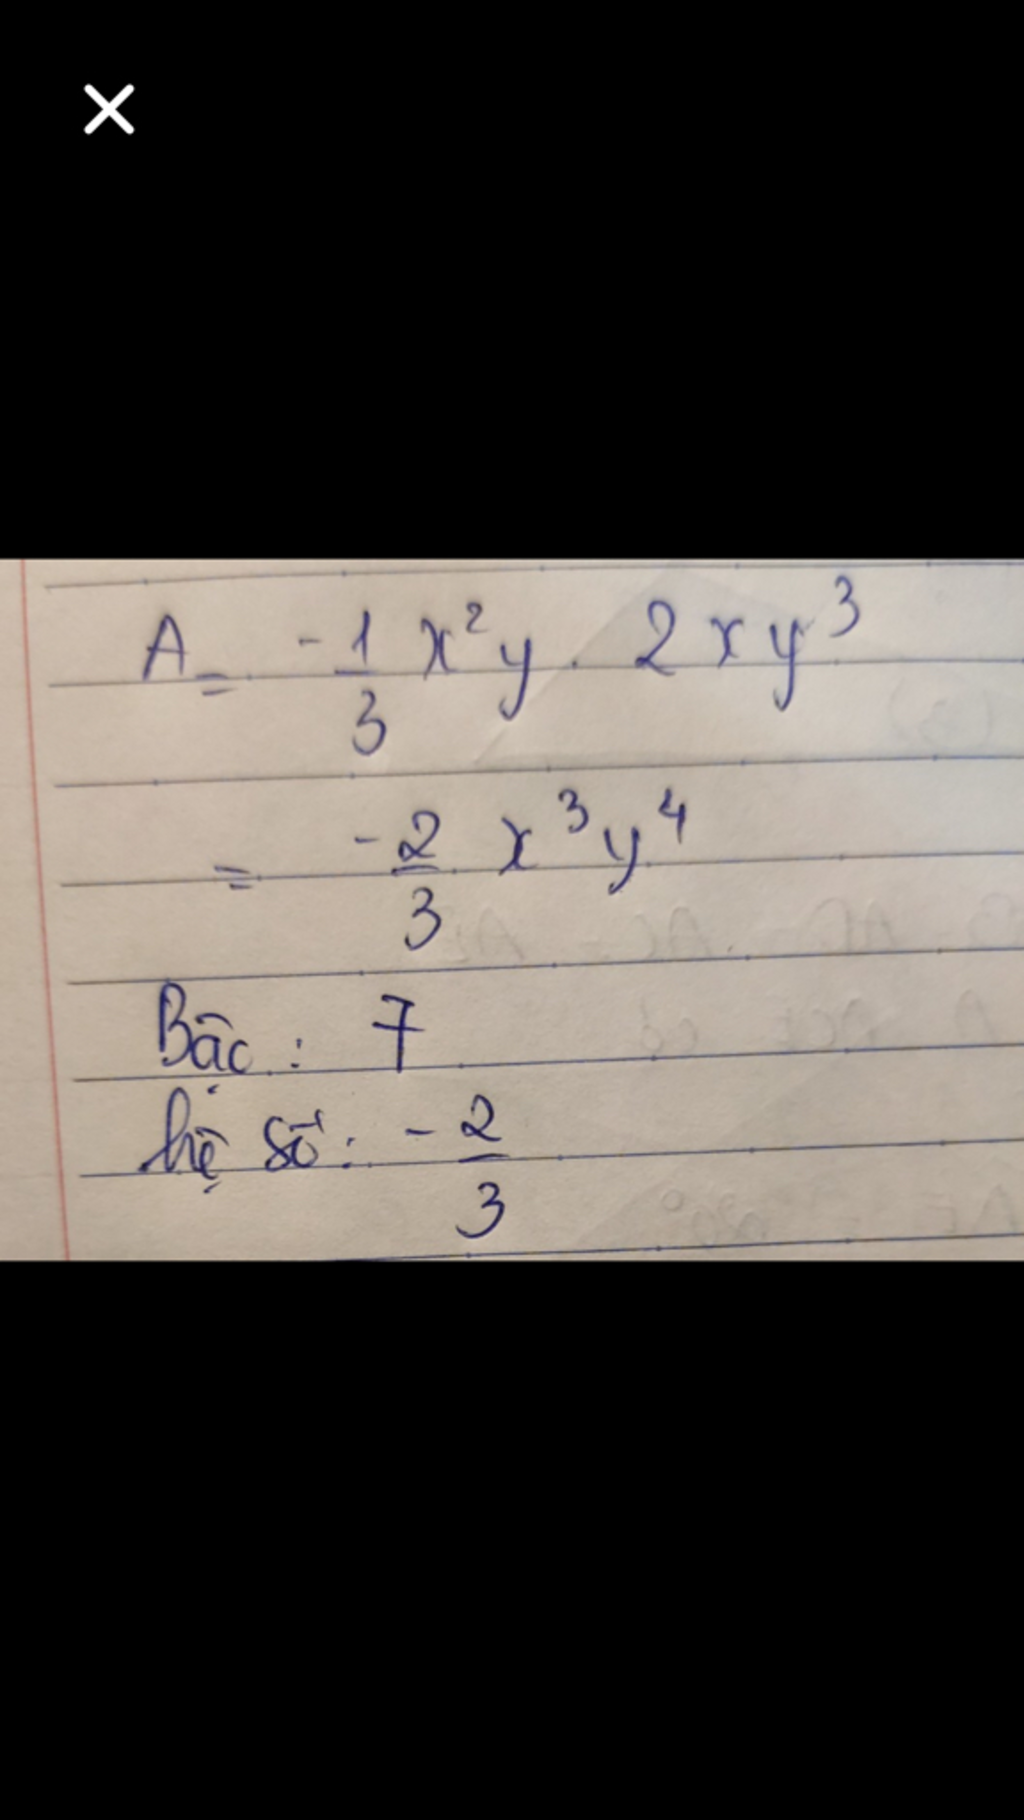 A = -1/3 x²y . 2xy³
= -2/3 x³y⁴
Bậc : 7
hệ số : -2/3